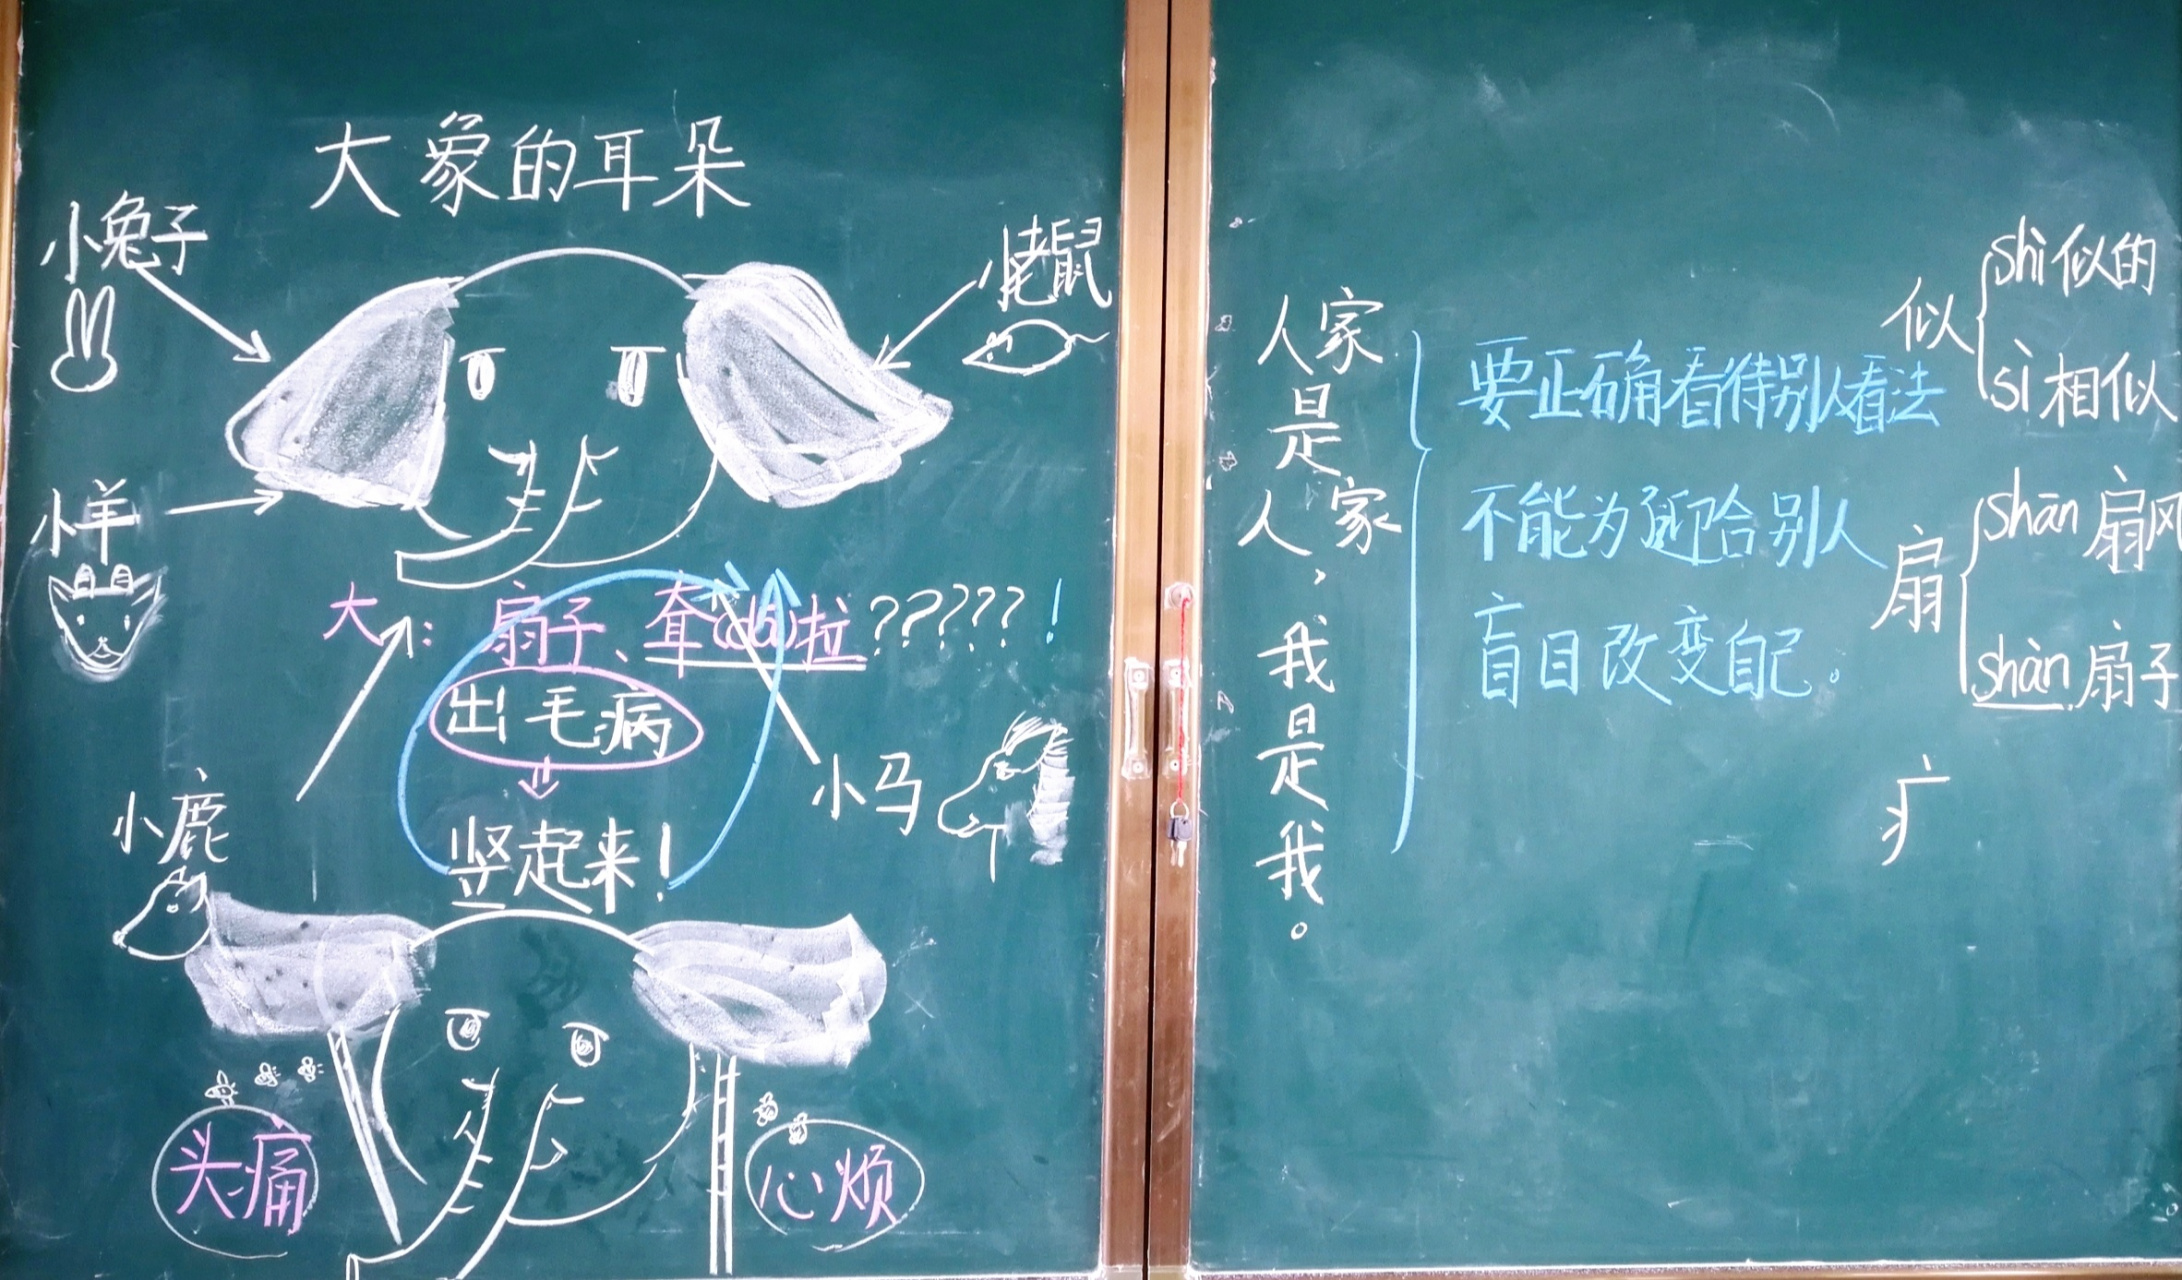 大象的耳朵
小兔子
小老鼠
小羊
大：扇子、耷(dā)拉?????!
出毛病
竖起来!
小鹿
小马
头痛
心烦
人家是人家，我是我。
要正确看待别人看法
不能为迎合别人
盲目改变自己。
似
shì 似的
sì 相似
扇
shān 扇风
shàn 扇子
疒